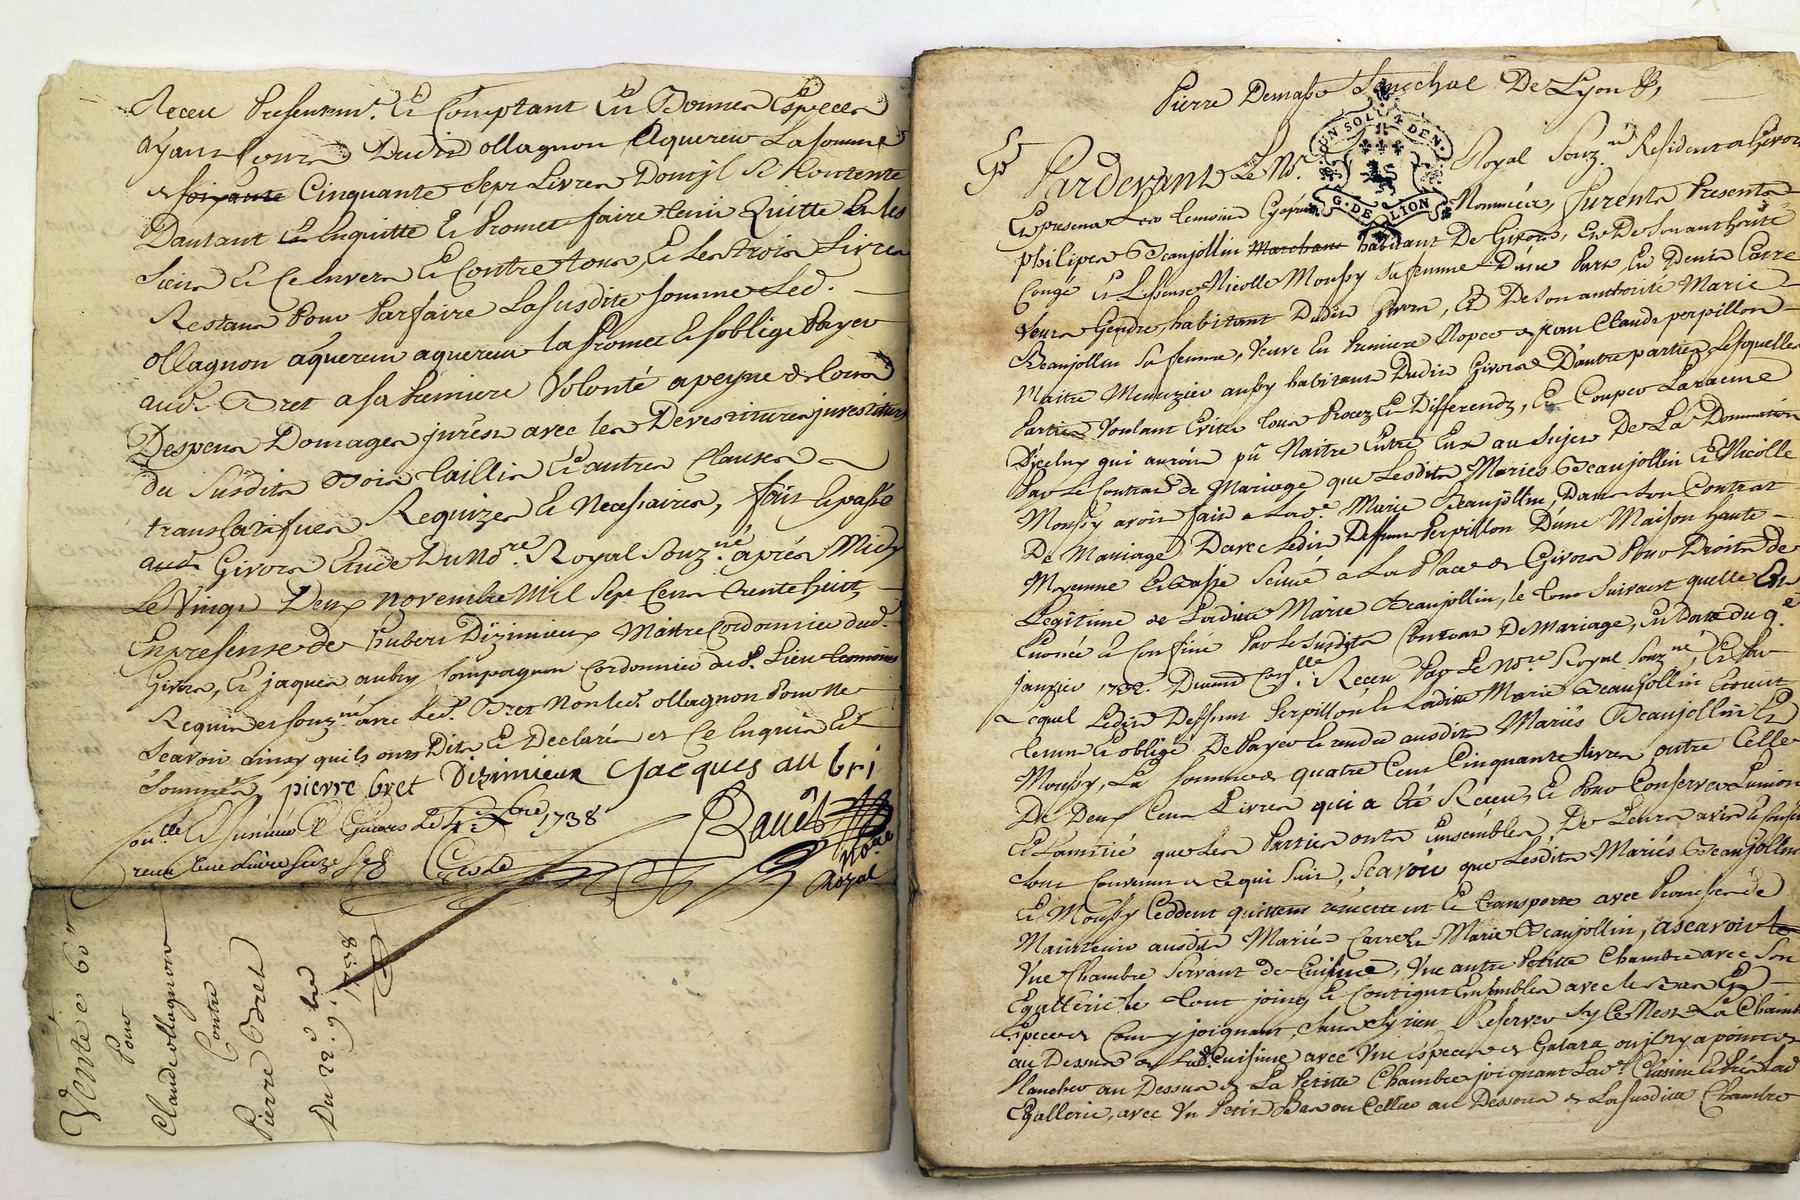 Receu Presentemt. Et Comptant En Bonnes Especes
ayant Cours Dudit ollagnon Aquereur La somme
de soixante Cinquante Sept Livres Dont jl Se Contente
Dautant Et Enquitte Et Promet faire tenir Quitte Les
Siens Et Ce Envers Et Contre tous, Et Les trois Livres
Restans Pour Parfaire La susdite somme Led.
ollagnon aquereur aquereur La Promet Et soblige Payer
aud. Bret a sa Premiere Volonté a peyne de tous
Despens Domages jnrêsts avec les Devestitures jnvestitures
du Susdit Bois taillis Et autres Clauses
translatifves Requizes Et Necessaires, fait Et passé
aud. Givors Etude Du Nore. Royal Souz.né après Midy
Le Vingt Deux novembre Mil Sept Cens trente huit
En presense de hubert Dizimieux Maitre Cordonnier dud.
Givors, Et jaques aubry Compagnon Cordonnier dud. Lieu temoins
Requis et souz.nés avec Led. Bret Non led. ollagnon Pour Ne
Scavoir ainsy quils ont Dit Et Declaré de Ce Enquis Et
Sommés, pierre bret Dizimieux Jacques au bri
Con.llé à Givors Le xbre 1738
receu une Livre Seize s
Noire
Royal
Vente 60
Pour
Claude ollagnon
Contre
Pierre Bret
Du 22e 9.bre
1738
Pierre Demasso Senechal De Lyon &,
UN SOL 4 DEN.
G. DE LION
Pardevant Le No. Royal Souz.né Resident a Givors
Et presens Les temoins Cyapres Nommées, furents Presents
philipes Beaujollin Marchant habitant De Givors, Et De Son authorité
Congé Et Lissense Nicolle Moussy Sa femme D'une Part, Et Denis Carre
Leurs Gendre habitant Dudit Givors, Et De Son authorité Marie
Beaujollin Sa femme, Veuve En Premiere Nopce de jean Claude perpillon
Maitre Menuzier aussy habitans Dudit Givors D'autre parties, Lesquelles
Parties Voulant Eviter tous Procez Et Differends, Et Couper La racine
D'iceluy qui auroit pû Naitre Entre Eux au Sujet De La Donnation
Par Le Contrat de Mariage que Lesdits Mariés Beaujollin Et Nicolle
Moussy avoit fait a Lad.e Marie Beaujollin, Dans Son Contrat
De Mariage D'avec Ledit Deffunt Perpillon D'une Maison haute
Moyenne Et Basse Scituée a La Place de Givors Pour Droits de
Legitime de Ladite Marie Beaujollin, le tout Suivant quelle Est
Enoncée Et Confiné Par Le Susdit Contrat De Mariage, En Datte du 9.e
janvier Receu Par Le No.re Royal Souz.né, Et Par
Lequel Ledit Deffunt Perpillon Et Ladite Marie Beaujollin
tenus Et obligé De Payer Et rendre ausdits Mariés Beaujollin Et
Moussy, La Somme de quatre Cent Cinquante livres, outre Celle
De Deux Cent Livres qui a été Receu, Et Pour Conserver L'union
Et L'amitié que Les Parties onts Ensembles, De Leurs avis
Sont Convenus de ce qui Suit, Scavoir que Lesdits Mariés Beaujollin
Et Moussy Ceddent quittent remettent Et transporte avec Promesse de
Maintenir ausdits Mariés Carre Et Marie Beaujollin, ascavoir
Vne Chambre Servant de Cuisine, Vne autre Petitte Chambre avec Son
Egallerie le tout joing Et Contigut Ensembles avec le
Espece de Cour y joignant, Sans Sy rien Reserver Sy Ce Nest La Chambre
au Dessus de Lad. Cuisine avec Vne Espece de Galata ou jl ny a point de
Plancher au Dessus de La Petitte Chambre joignant Lad.e Cuisine
Egallerie, avec Vn Petit ou Cellier au Dessous de La susditte Chambre